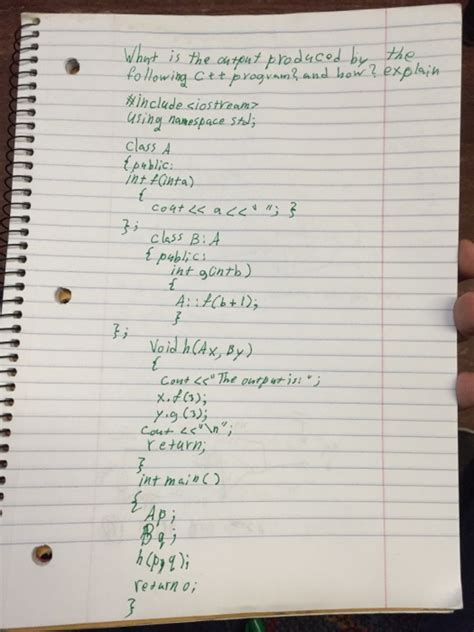 What is the output produced by the
following C++ program? and how? explain
#include <iostream>
using namespace std;
class A
{ public:
int f(int a)
{
cout << a << " "; }
};
class B: A
{ public:
int g(int b)
{
A::f(b+1);
}
};
Void h(A x, B y)
{
Cout << "The output is: ";
x.f(3);
y.g(3);
Cout << "\n";
return;
}
int main()
{
A p;
B q;
h(p,q);
return 0;
}